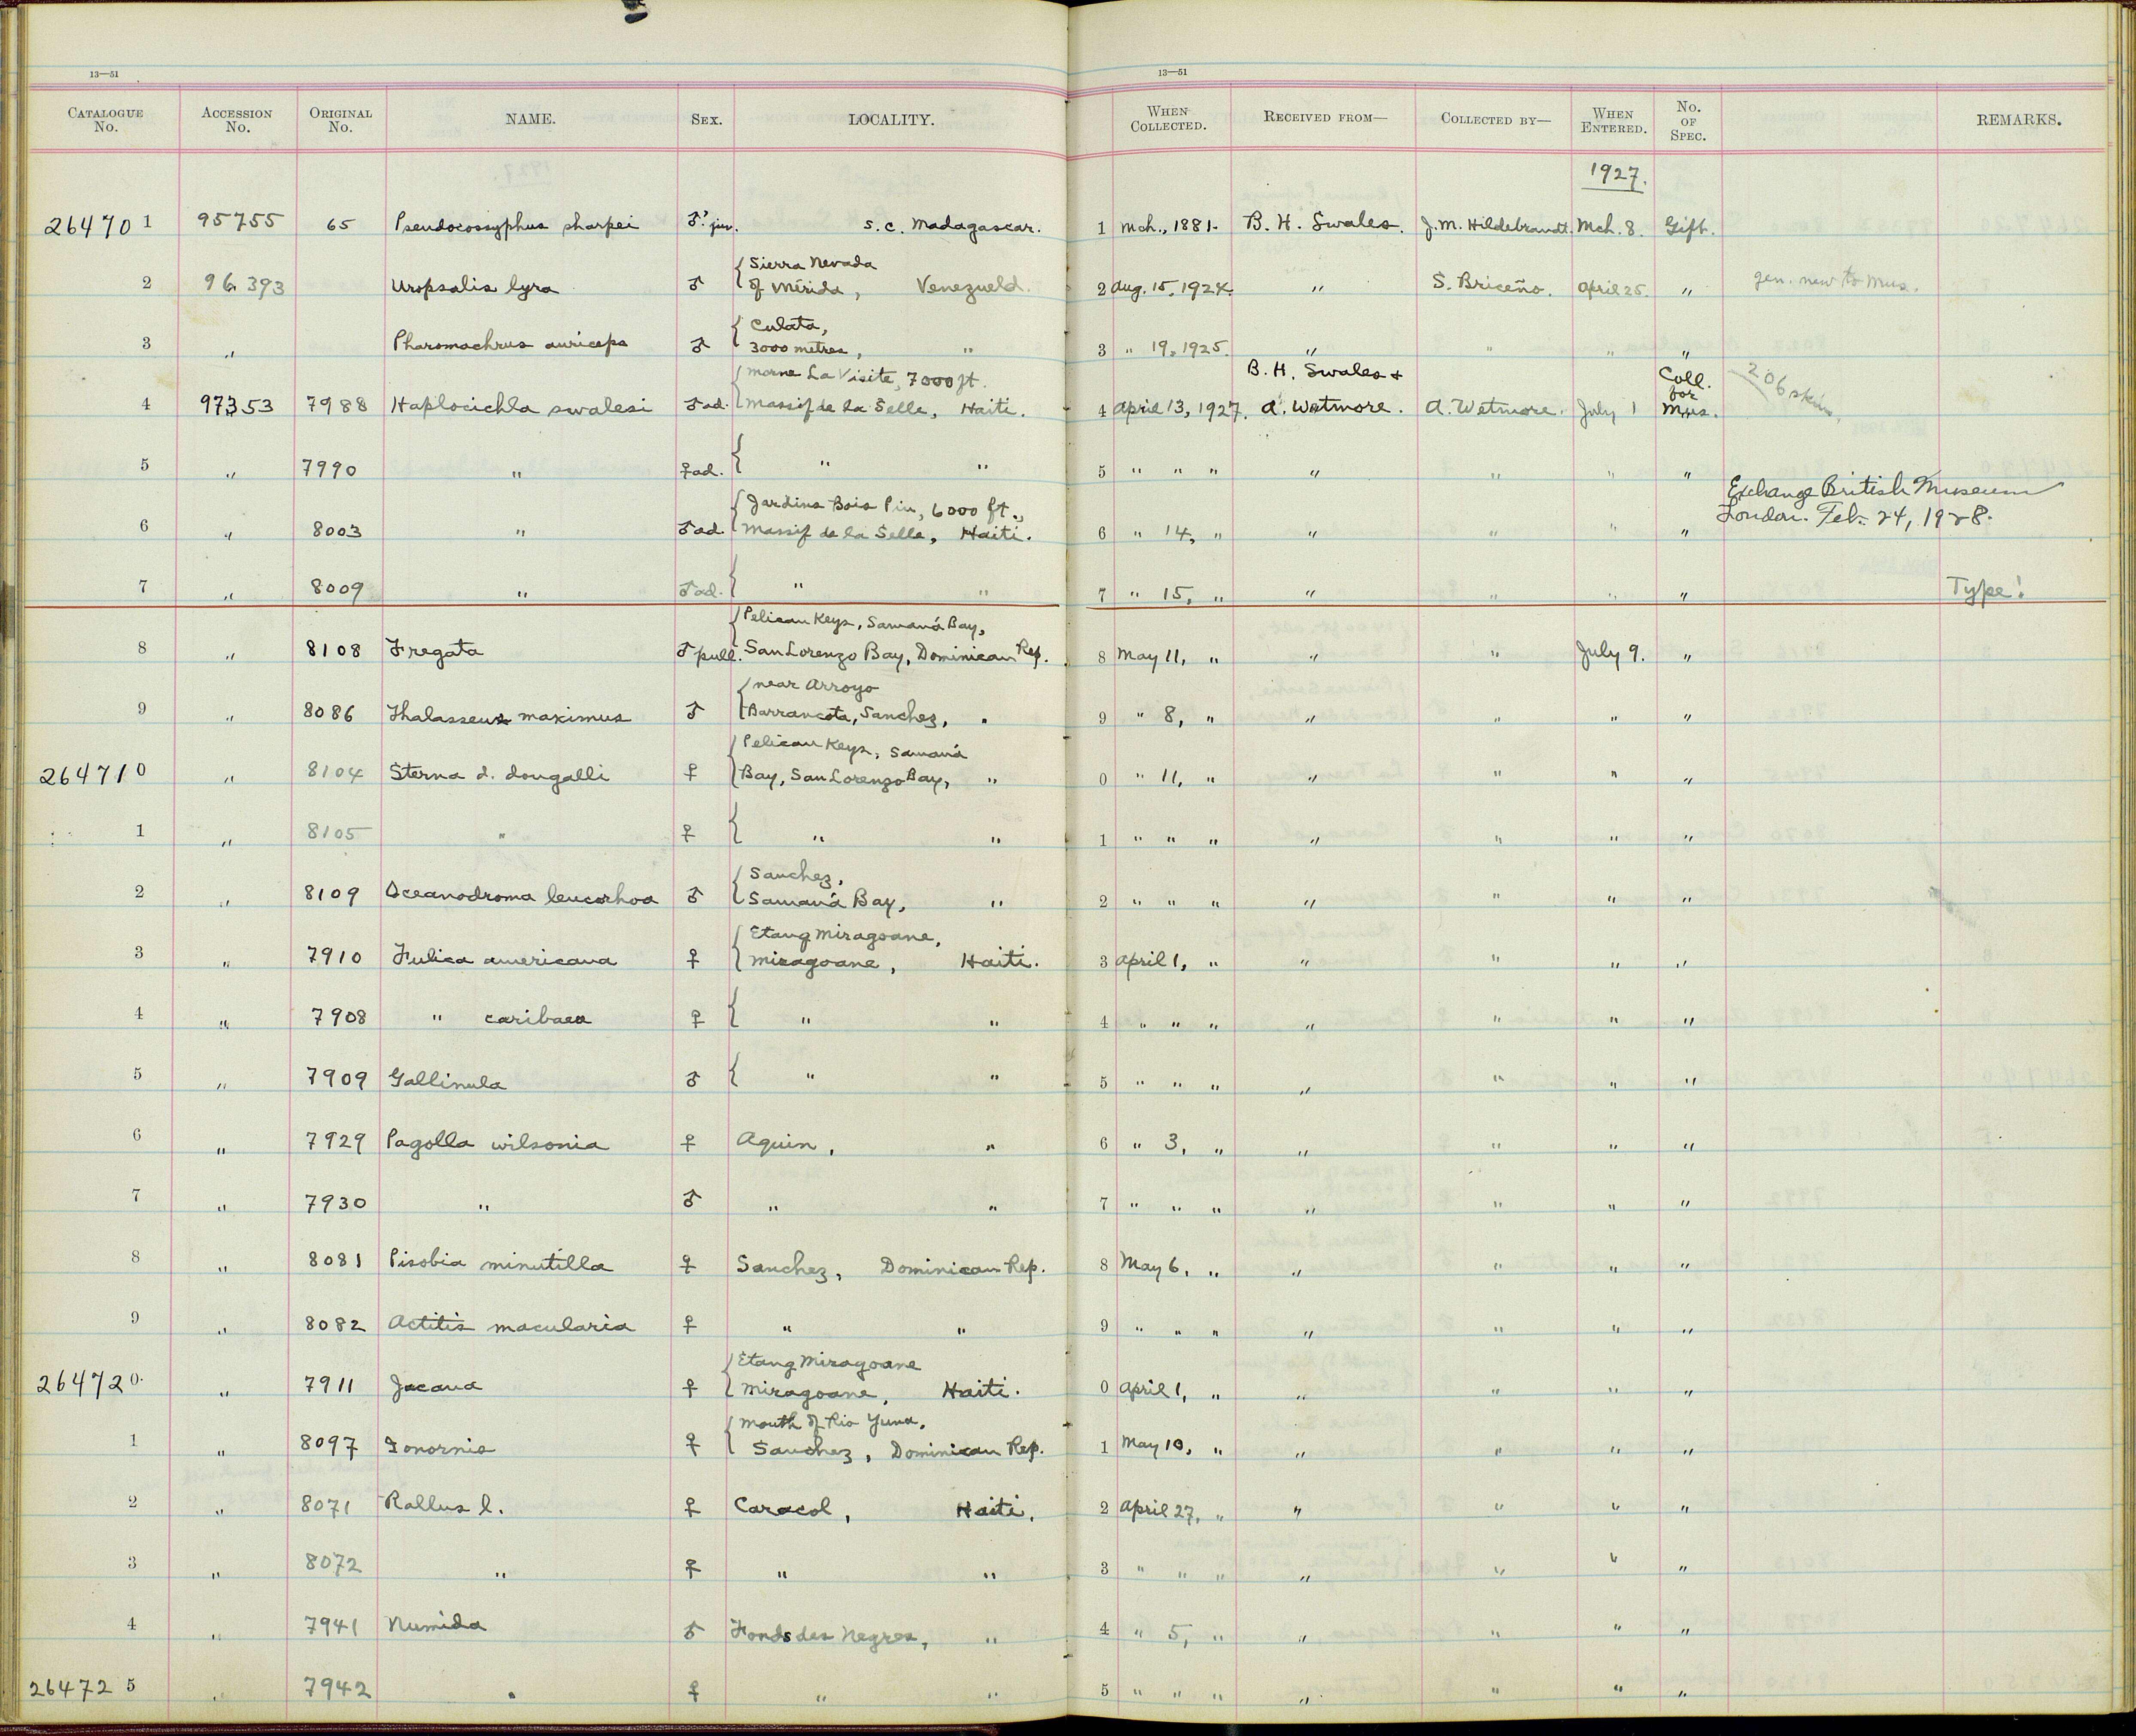 13—51
13—51
CATALOGUE No. ACCESSION No. ORIGINAL No. NAME. SEX. LOCALITY. WHEN COLLECTED. RECEIVED FROM— COLLECTED BY— WHEN ENTERED. No. OF SPEC. REMARKS.
1927.
264701 95755 65 Pseudocossyphus sharpei ♂ juv. S.C. Madagascar. 1 Mch., 1881. B. H. Swales. J. M. Hildebrandt. Mch. 8. Gift.
Sierra Nevada
2 96393 Uropsalis lyra ♂ of Mérida, Venezuela. 2 Aug. 15, 1924. " S. Briceño. April 25. " gen. new to Mus.
Culata,
3 " Pharomachrus auriceps ♂ 3000 metres, " 3 " 19, 1925. " " " "
Morne La Visite, 7000 ft. B. H. Swales + Coll. for
4 97353 7988 Haplocichla swalesi ♂ ad. Massif de la Selle, Haiti. 4 April 13, 1927. A. Wetmore. A. Wetmore. July 1 Mus. 206 skins,
5 " 7990 " ♀ ad. " " 5 " " " " " " "
Jardins Bois Pin, 6000 ft., Exchange British Museum
6 " 8003 " ♂ ad. Massif de la Selle, Haiti. 6 " 14, " " " " " London. Feb. 24, 1928.
7 " 8009 " ♂ ad. " " 7 " 15, " " " " " Type!
Pelican Keys, Samaná Bay,
8 " 8108 Fregata ♂ pull. San Lorenzo Bay, Dominican Rep. 8 May 11, " " " July 9. "
near Arroyo
9 " 8086 Thalasseus maximus ♂ Barrancota, Sanchez, " 9 " 8, " " " " "
Pelican Keys, Samaná
264710 " 8104 Sterna d. dougalli ♀ Bay, San Lorenzo Bay, " 0 " 11, " " " " "
1 " 8105 " ♀ " " 1 " " " " " " "
Sanchez,
2 " 8109 Oceanodroma leucorhoa ♂ Samaná Bay, " 2 " " " " " " "
Etang Miragoane,
3 " 7910 Fulica americana ♀ Miragoane, Haiti. 3 April 1, " " " " "
4 " 7908 " caribaea ♀ " " 4 " " " " " " "
5 " 7909 Gallinula ♂ " " 5 " " " " " " "
6 " 7929 Pagolla wilsonia ♀ Aquin, " 6 " 3, " " " " "
7 " 7930 " ♂ " " 7 " " " " " " "
8 " 8081 Pisobia minutilla ♀ Sanchez, Dominican Rep. 8 May 6, " " " " "
9 " 8082 Actitis macularia ♀ " " 9 " " " " " " "
Etang Miragoane
264720 " 7911 Jacana ♀ Miragoane, Haiti. 0 April 1, " " " " "
Mouth of Rio Yuna,
1 " 8097 Ionornis ♀ Sanchez, Dominican Rep. 1 May 10, " " " " "
2 " 8071 Rallus l. ♀ Caracol, Haiti. 2 April 27, " " " " "
3 " 8072 " ♀ " " 3 " " " " " " "
4 " 7941 Numida ♂ Fonds des Negres, " 4 " 5, " " " " "
264725 " 7942 " ♀ " " 5 " " " " " " "